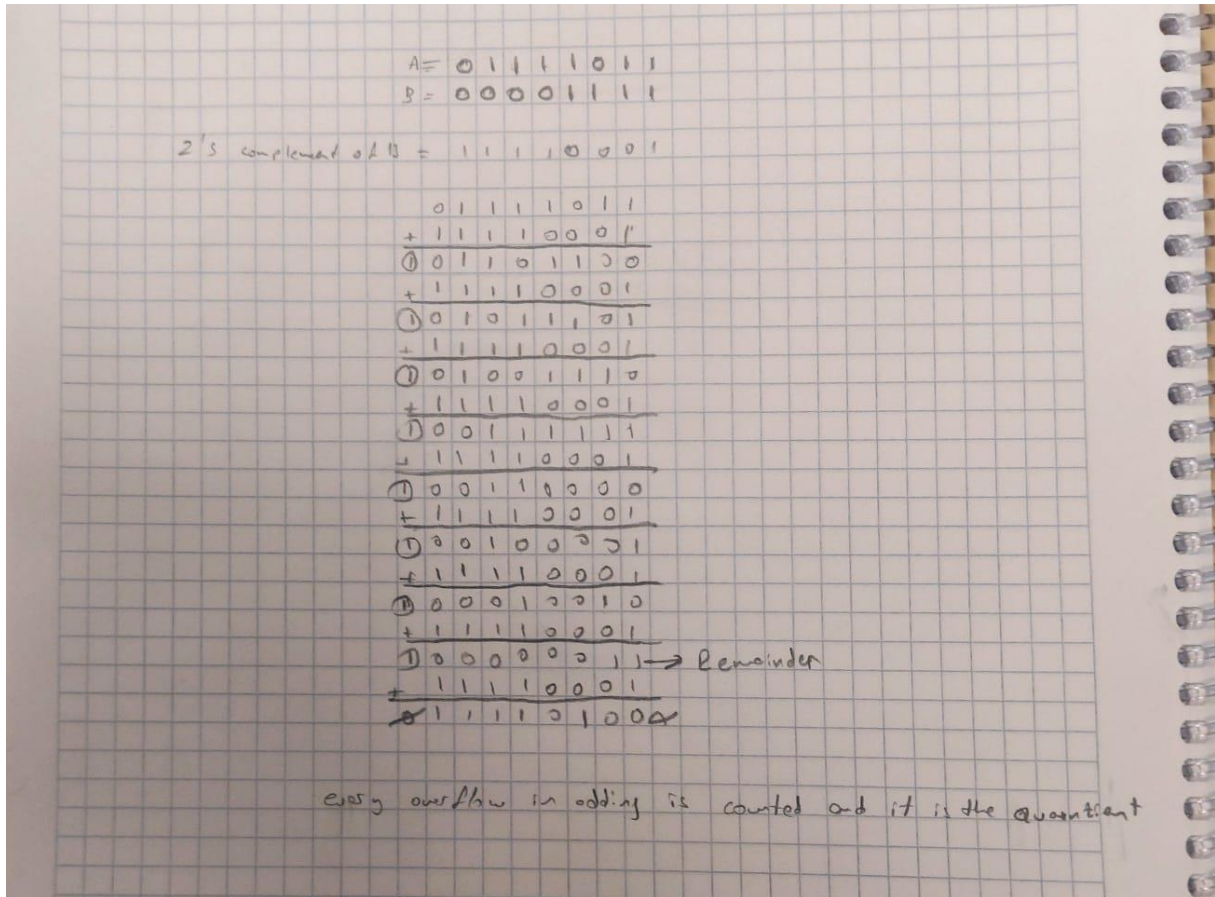 A= 0 1 1 1 1 0 1 1
B = 0 0 0 0 1 1 1 1
2's complement of B = 1 1 1 1 0 0 0 1
0 1 1 1 1 0 1 1
+ 1 1 1 1 0 0 0 1
① 0 1 1 0 1 1 0 0
+ 1 1 1 1 0 0 0 1
① 0 1 0 1 1 1 0 1
+ 1 1 1 1 0 0 0 1
① 0 1 0 0 1 1 1 0
+ 1 1 1 1 0 0 0 1
① 0 0 1 1 1 1 1 1
+ 1 1 1 1 0 0 0 1
① 0 0 1 1 0 0 0 0
+ 1 1 1 1 0 0 0 1
① 0 0 1 0 0 0 0 1
+ 1 1 1 1 0 0 0 1
① 0 0 0 1 0 0 1 0
+ 1 1 1 1 0 0 0 1
① 0 0 0 0 0 0 1 1 → Remainder
+ 1 1 1 1 0 0 0 1
0 1 1 1 1 0 1 0 0
every overflow in adding is counted and it is the quantient